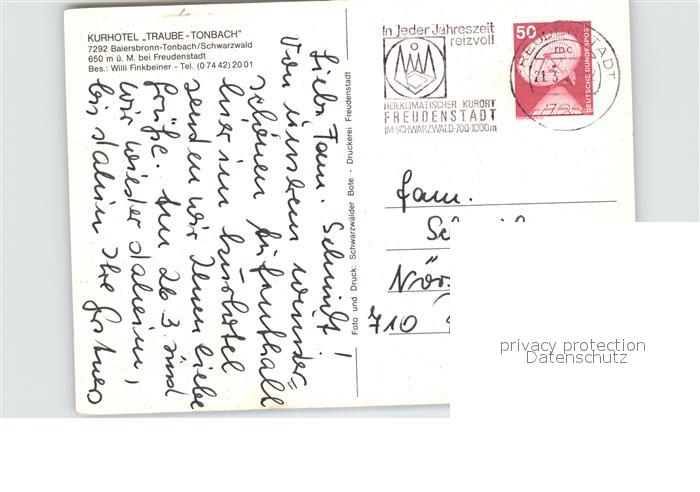 KURHOTEL „TRAUBE-TONBACH"
7292 Baiersbronn-Tonbach/Schwarzwald
650 m ü. M. bei Freudenstadt
Bes.: Willi Finkbeiner - Tel. (0 74 42) 20 01
Liebe Fam. Schmidt!
Von unserem wunder=
schönen Aufenthalt
hier im Kurhotel
senden wir Ihnen liebe
Grüße. Am 26.3. sind
wir wieder daheim,
bis dahin Ihre
Foto und Druck: Schwarzwälder Bote - Druckerei Freudenstadt
In Jeder Jahreszeit
reizvoll
HEILKLIMATISCHER KURORT
FREUDENSTADT
IM SCHWARZWALD·700-1000m
50
DEUTSCHE BUNDESPOST
FREUDENSTADT
mc
21.3.
Fam.
Sch
Nör
710
privacy protection
Datenschutz